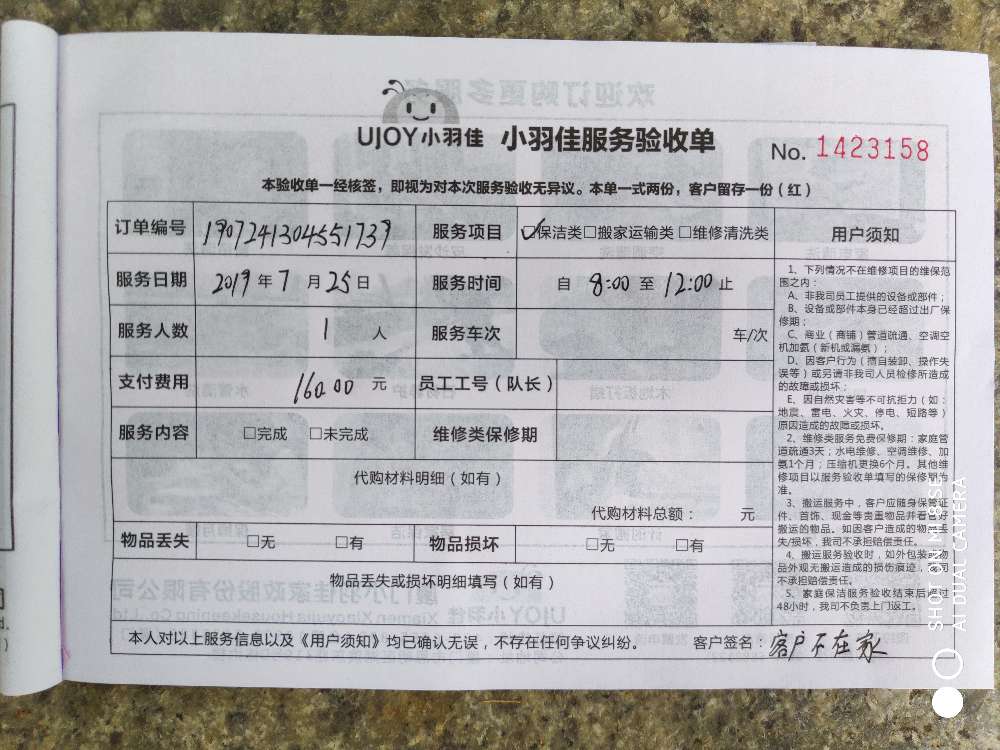 UJOY小羽佳 小羽佳服务验收单 No. 1423158
本验收单一经核签，即视为对本次服务验收无异议。本单一式两份，客户留存一份（红）
订单编号 1907241304551739 服务项目 ☑保洁类□搬家运输类 □维修清洗类
服务日期 2019 年 7 月 25 日 服务时间 自 8:00 至 12:00 止
服务人数 1 人 服务车次 车/次
支付费用 160.00 元 员工工号（队长）
服务内容 □完成 □未完成 维修类保修期
代购材料明细（如有）
代购材料总额： 元
物品丢失 □无 □有 物品损坏 □无 □有
物品丢失或损坏明细填写（如有）
本人对以上服务信息以及《用户须知》均已确认无误，不存在任何争议纠纷。 客户签名：客户不在家
用户须知
1、下列情况不在维修项目的维保范
围之内：
A、非我司员工提供的设备或部件；
B、设备或部件本身已经超过出厂保
修期；
C、商业（商铺）管道疏通、空调空
机加氨（新机或漏氨）；
D、因客户行为（擅自装卸、操作失
误等）或另请非我司人员检修所造成
的故障或损坏；
E、因自然灾害等不可抗拒力（如：
地震、雷电、火灾、停电、短路等）
原因造成的故障或损坏。
2、维修类服务免费保修期：家庭管
道疏通3天；水电维修、空调维修、加
氨1个月；压缩机更换6个月。其他维
修项目以服务验收单填写的保修期为
准。
3、搬运服务中，客户应随身保管证
件、首饰、现金等贵重物品并看管好
搬运的物品。如因客户造成的物品丢
失/损坏，我司不承担赔偿责任。
4、搬运服务验收时，如外包装或物
品外观无搬运造成的损伤痕迹，我司
不承担赔偿责任。
5、家庭保洁服务验收结束后超过
48小时，我司不负责上门返工。
SHOT ON MI 8 SE
AI DUAL CAMERA